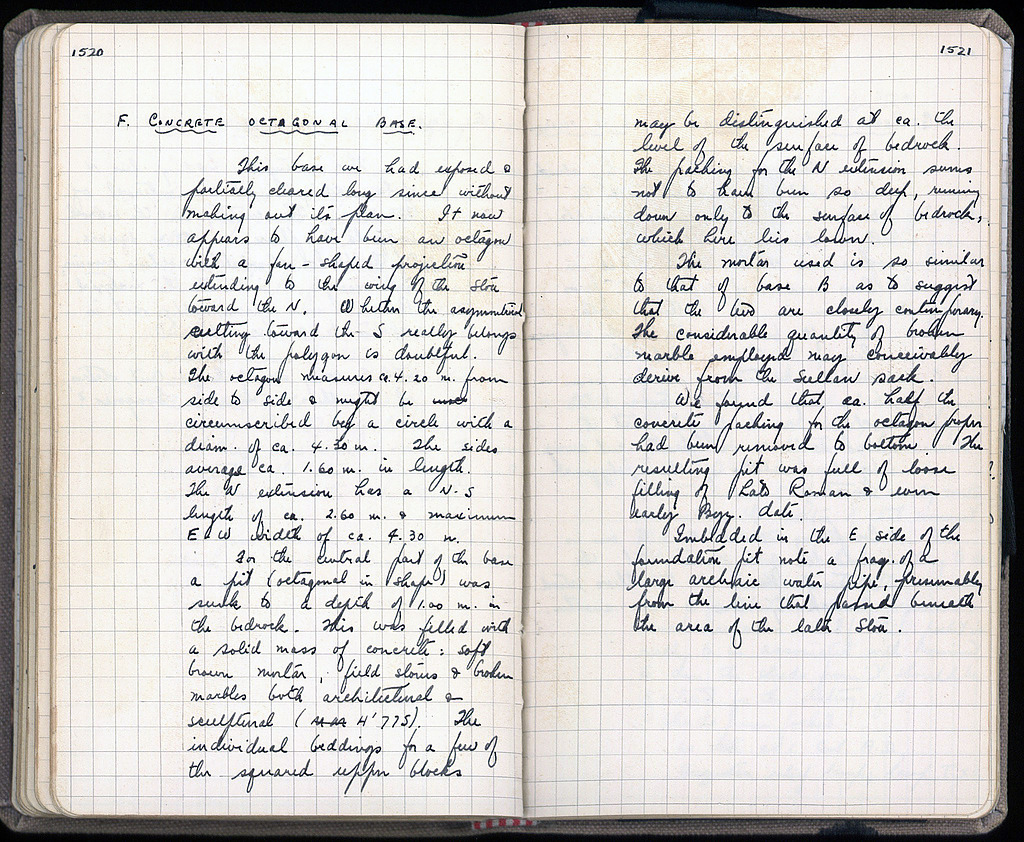 1520
F. CONCRETE OCTAGONAL BASE.
This base we had exposed &
partially cleared long since without
making out its plan. It now
appears to have been an octagon
with a fan-shaped projection
extending to the wing of the Stoa
toward the N. Whether the asymmetrical
cutting toward the S really belongs
with the polygon is doubtful.
The octagon measures ca. 4.20 m. from
side to side & might be
circumscribed by a circle with a
diam. of ca. 4.30 m. The sides
average ca. 1.60 m. in length.
The N extension has a N-S
length of ca. 2.60 m. & maximum
E W width of ca. 4.30 m.
For the central part of the base
a pit (octagonal in shape) was
sunk to a depth of 1.00 m. in
the bedrock. This was filled with
a solid mass of concrete: soft
brown mortar, field stones & broken
marbles both architectural &
sculptural (H'775). The
individual beddings for a few of
the squared upper blocks
1521
may be distinguished at ca. the
level of the surface of bedrock.
The packing for the N extension seems
not to have been so deep, running
down only to the surface of bedrock,
which here lies lower.
The mortar used is so similar
to that of base B as to suggest
that the two are closely contemporary.
The considerable quantity of broken
marble employed may conceivably
derive from the Sullan sack.
We found that ca. half the
concrete packing for the octagon proper
had been removed to bottom. The
resulting pit was full of loose
filling of Late Roman & even
early Byz. date.
Imbedded in the E side of the
foundation pit note a frag. of a
large archaic water pipe, presumably
from the line that passed beneath
the area of the later Stoa.